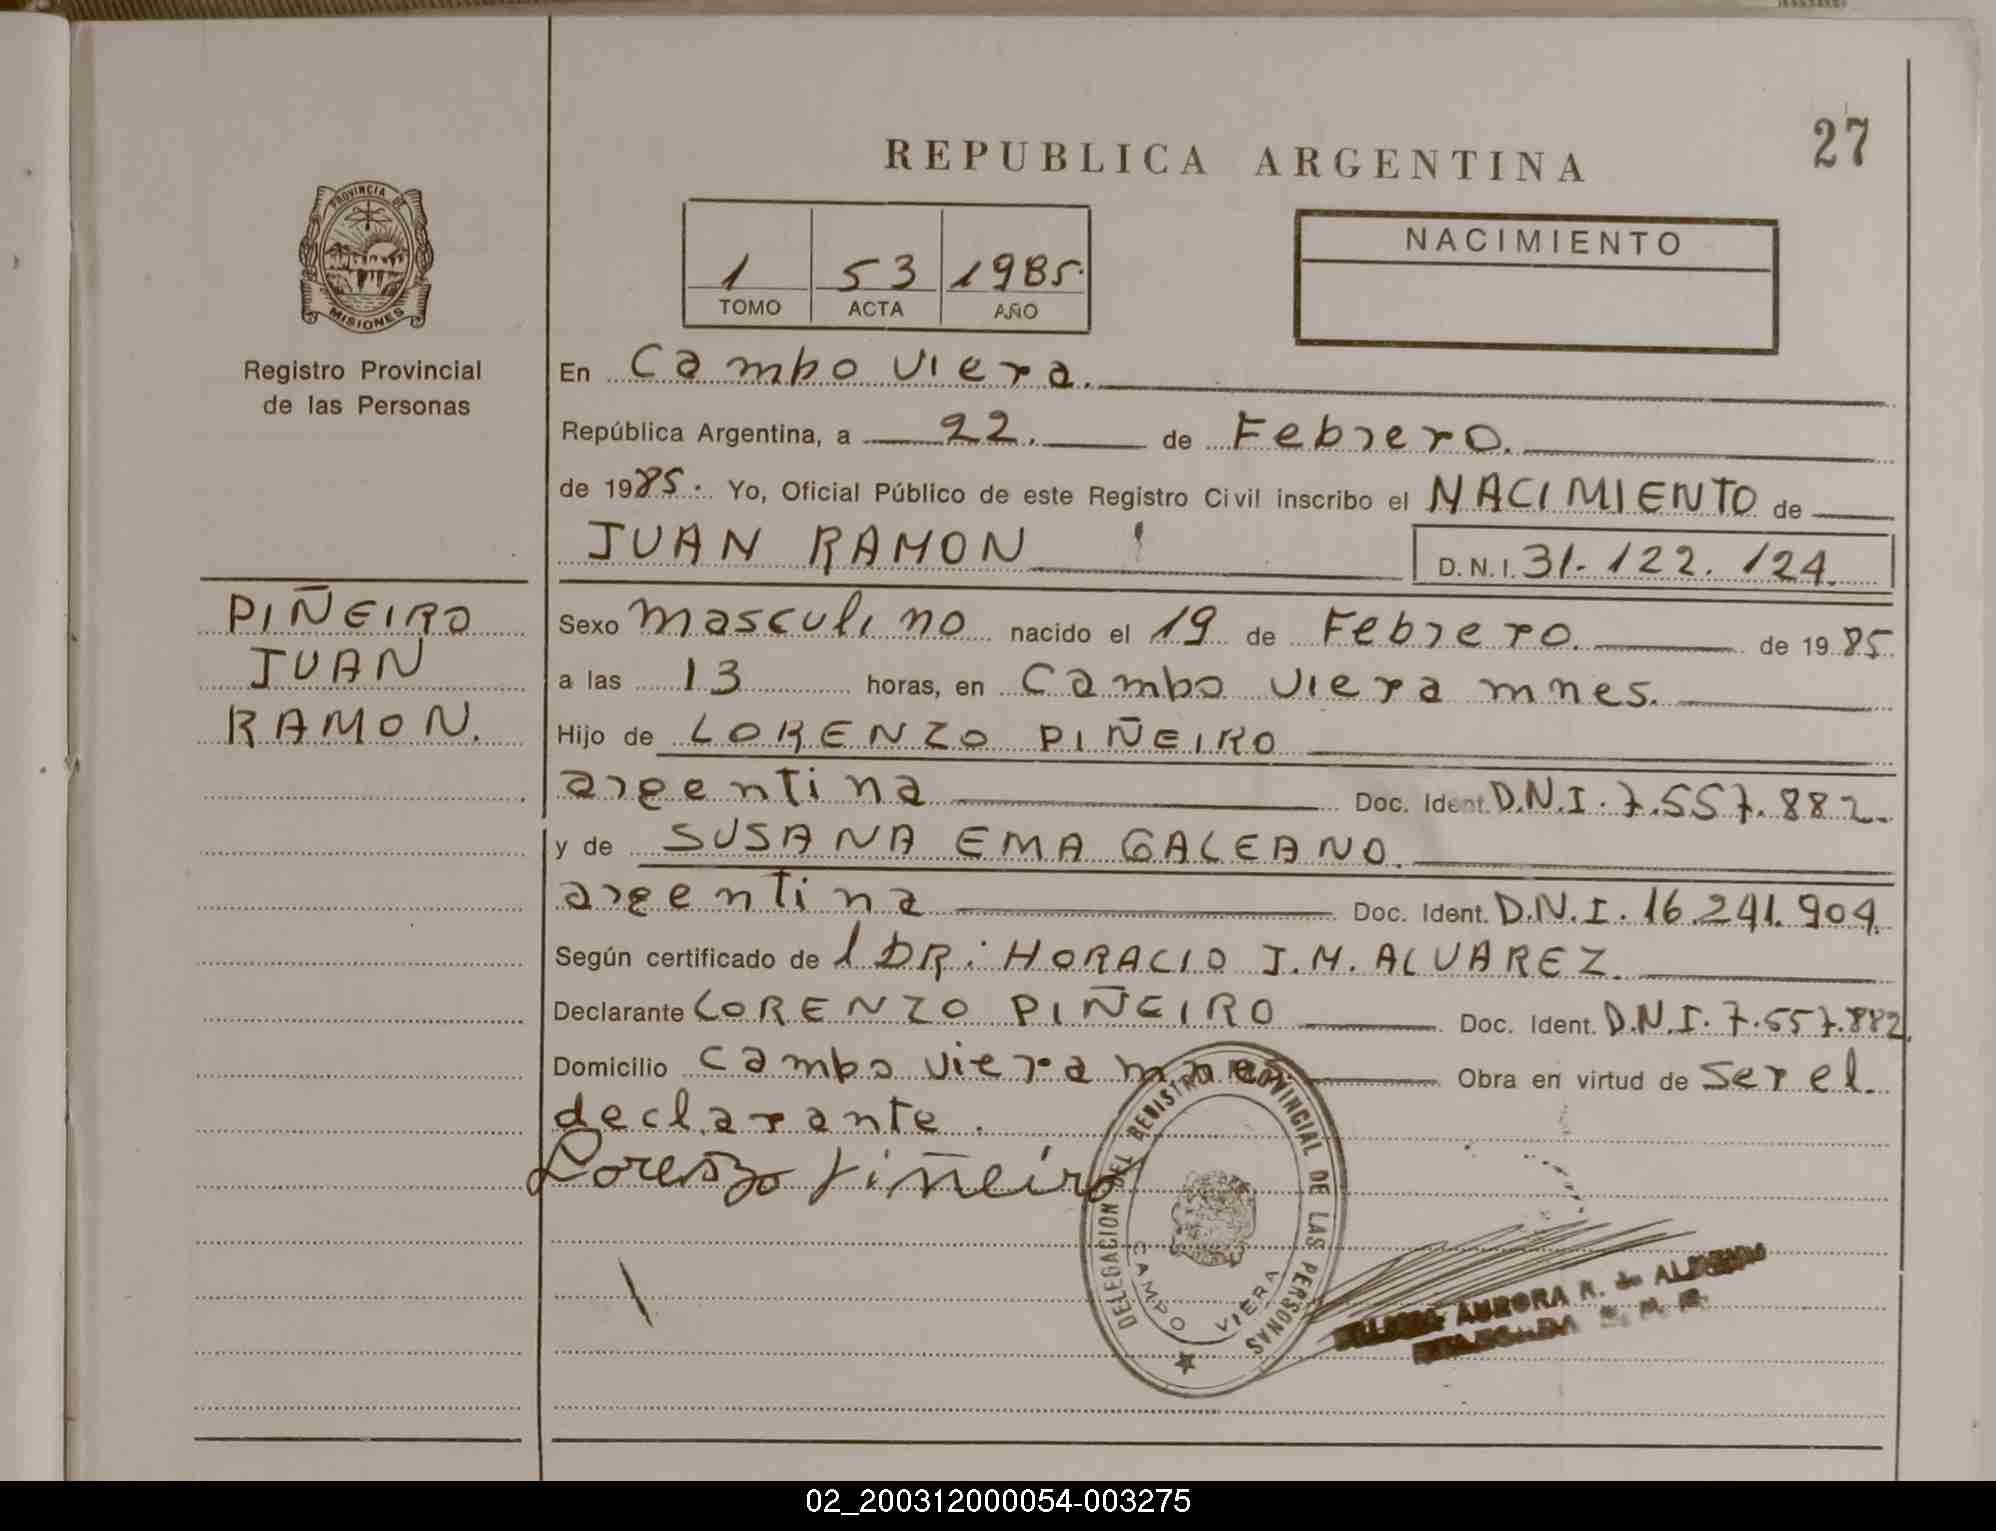 27
REPUBLICA ARGENTINA
PROVINCIA DE
MISIONES
Registro Provincial
de las Personas
1 53 1985
TOMO ACTA AÑO
NACIMIENTO
En Campo Viera.
República Argentina, a 22. de Febrero.
de 1985. Yo, Oficial Público de este Registro Civil inscribo el NACIMIENTO de
JUAN RAMON D.N.I. 31.122.124.
PIÑEIRO
JUAN
RAMON.
Sexo masculino nacido el 19 de Febrero. de 1985.
a las 13 horas, en Campo Viera mnes.
Hijo de LORENZO PIÑEIRO
argentina Doc. Ident. D.N.I. 7.557.882.
y de SUSANA EMA GALEANO.
argentina Doc. Ident. D.N.I. 16.241.904.
Según certificado de l DR: HORACIO J.M. ALVAREZ.
Declarante LORENZO PIÑEIRO Doc. Ident. D.N.I. 7.557.882.
Domicilio Campo Viera mnes Obra en virtud de ser el
declarante.
Lorenzo Piñeiro
DELEGACION DEL REGISTRO PROVINCIAL DE LAS PERSONAS
CAMPO VIERA
AURORA R. de
02_200312000054-003275